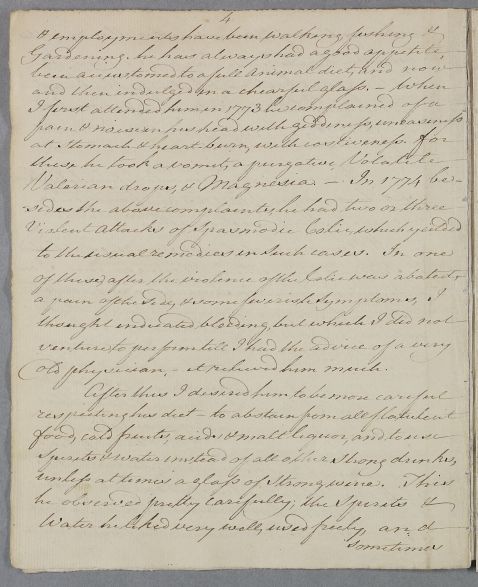 4
& employments have been walking fishing &
Gardening. he has always had a good appetite,
been accustomed to a full animal diet, and now
and then indulged in a chearful glass. – When
I first attended him in 1773 he complained of a
pain & noise in his head with giddiness, uneasiness
at Stomach & heart burn, with costiveness. for
these he took a vomit, a purgative, Volatile
Valerian drops, & Magnesia. – In 1774 be-
sides the above complaints, he had two or three
Violent attacks of Spasmodic Colic, which yeilded
to the usual remedies in such cases. In one
of these after the violence of the Colic was abated,
a pain of the side, & some feverish Symptoms, I
thought indicated bleeding, but which I did not
venture to perform till I had the advice of a very
Old physician, – it relieved him much.
After this I desired him to be more careful
respecting his diet – to abstain from all flatulent
food, cold fruits, acids & malt liquor, and to use
Spirits & water instead of all other strong drinks,
unless at times a glass of Strong wine. This
he observed pretty carefully; the Spirits &
Water he liked very well, used freely, and
sometimes